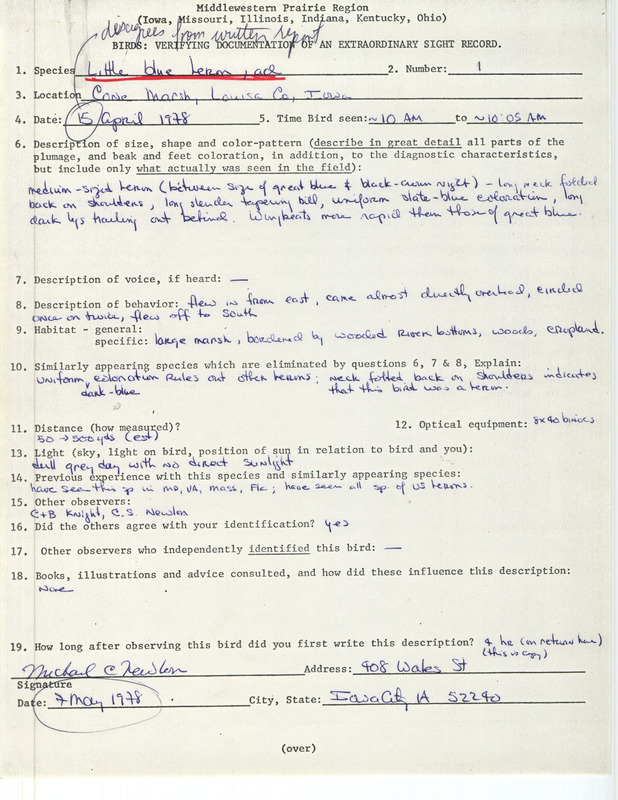 Middlewestern Prairie Region
(Iowa, Missouri, Illinois, Indiana, Kentucky, Ohio)
disagrees from written report
BIRDS: VERIFYING DOCUMENTATION OF AN EXTRAORDINARY SIGHT RECORD.
1. Species Little blue heron, ad 2. Number: 1
3. Location Cone Marsh, Louisa Co, Iowa
4. Date: 15 April 1978 5. Time Bird seen: ~10 AM to ~10:05 AM
6. Description of size, shape and color-pattern (describe in great detail all parts of the
plumage, and beak and feet coloration, in addition, to the diagnostic characteristics,
but include only what actually was seen in the field):
medium-sized heron (between size of great blue & black-crown night) - long neck folded
back on shoulders, long slender tapering bill, uniform slate-blue coloration, long
dark legs trailing out behind. Wingbeats more rapid than those of great blue.
7. Description of voice, if heard: —
8. Description of behavior: flew in from east, came almost directly overhead, circled
once or twice, flew off to South
9. Habitat - general:
specific: large marsh, bordered by wooded River bottoms, woods, cropland.
10. Similarly appearing species which are eliminated by questions 6, 7 & 8, Explain:
uniform dark-blue coloration Rules out other herons; neck folded back on shoulders indicates
that this bird was a heron.
11. Distance (how measured)? 12. Optical equipment: 8x40 binocs
50 → 500 yds (est)
13. Light (sky, light on bird, position of sun in relation to bird and you):
dull grey day with no direct sunlight
14. Previous experience with this species and similarly appearing species:
have seen this sp in MD, VA, Mass, Fla; have seen all sp of US herons.
15. Other observers:
C+B Knight, C.S. Newlon
16. Did the others agree with your identification? yes
17. Other observers who independently identified this bird: —
18. Books, illustrations and advice consulted, and how did these influence this description:
None
19. How long after observing this bird did you first write this description? 4 hr (on return home)
(this is copy)
Michael C Newlon Address: 408 Wales St
Signature
Date: 7 May 1978 City, State: Iowa City IA 52240
(over)